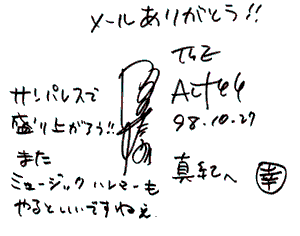 メールありがとう!!
THE
ALFEE
98.10.27
サンパレスで
盛り上がろう!!
また
ミュージックハンマーも
やるといいですねぇ
真紀へ
幸